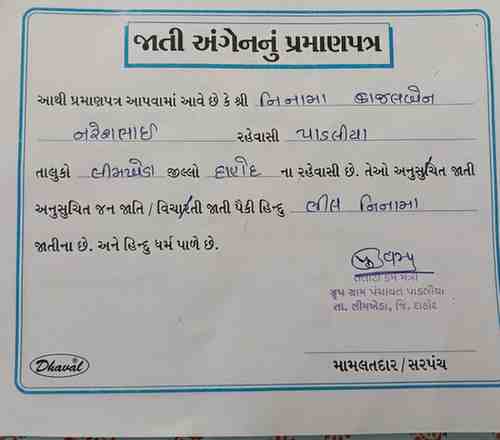 જાતી અંગેનનું પ્રમાણપત્ર
આથી પ્રમાણપત્ર આપવામાં આવે છે કે શ્રી નિનામા કાજલબેન
નરેશભાઈ રહેવાસી પાડલીયા
તાલુકો લીમખેડા જીલ્લો દાહોદ ના રહેવાસી છે. તેઓ અનુસુચિત જાતી
અનુસુચિત જન જાતિ / વિચારતી જાતી પૈકી હિન્દુ ભીલ નિનામા
જાતીના છે. અને હિન્દુ ધર્મ પાળે છે.
તલાટી કમ મંત્રી
ગ્રુપ ગ્રામ પંચાયત પાડલીયા
તા. લીમખેડા, જિ. દાહોદ
Dhaval
મામલતદાર / સરપંચ